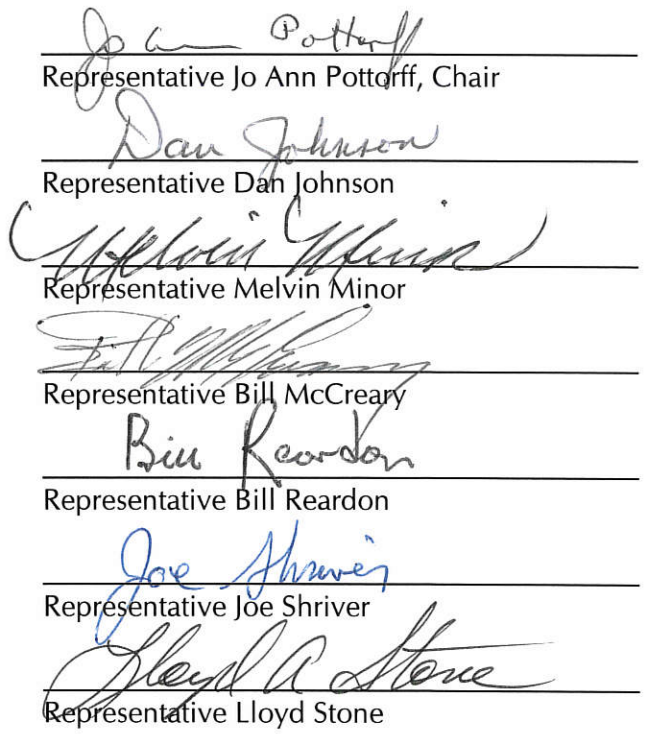 Jo Ann Pottorff
Representative Jo Ann Pottorff, Chair
Dan Johnson
Representative Dan Johnson
Melvin Minor
Representative Melvin Minor
Bill McCreary
Representative Bill McCreary
Bill Reardon
Representative Bill Reardon
Joe Shriver
Representative Joe Shriver
Lloyd A Stone
Representative Lloyd Stone